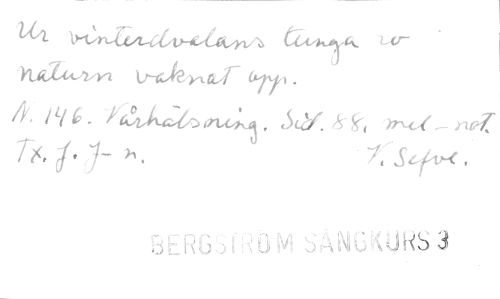 Ur vinterdvalans tunga ro
naturn vaknat opp.
N. 146. Vårhälsning. Sid. 88. mel-not.
Tx. J. J-n. V. Sefve.
BERGSTRÖM SÅNGKURS 3